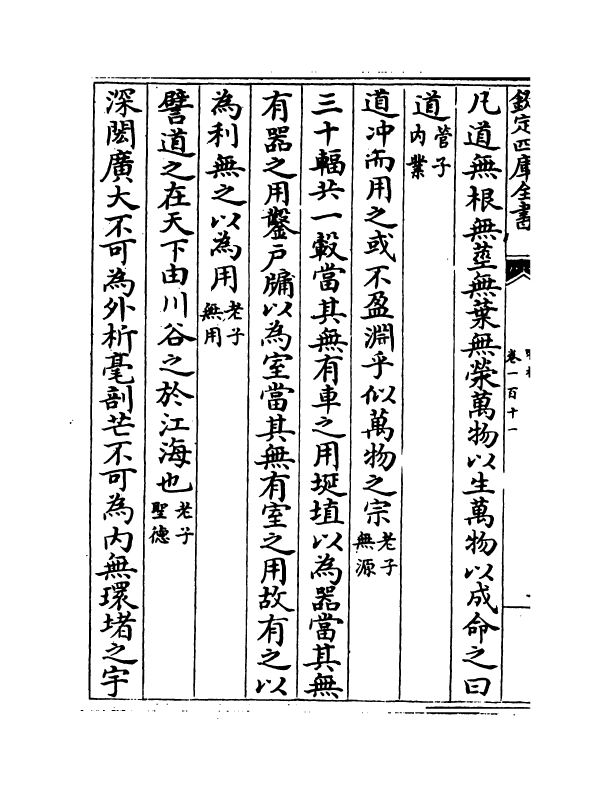 欽定四庫全書
卷一百十一
凡道無根無莖無葉無榮萬物以生萬物以成命之曰
道管子内業
道冲而用之或不盈淵乎似萬物之宗老子無源
三十輻共一轂當其無有車之用埏埴以為器當其無
有器之用鑿戸牖以為室當其無有室之用故有之以
為利無之以為用老子無用
譬道之在天下由川谷之於江海也老子聖德
深閎廣大不可為外析毫剖芒不可為内無環堵之宇